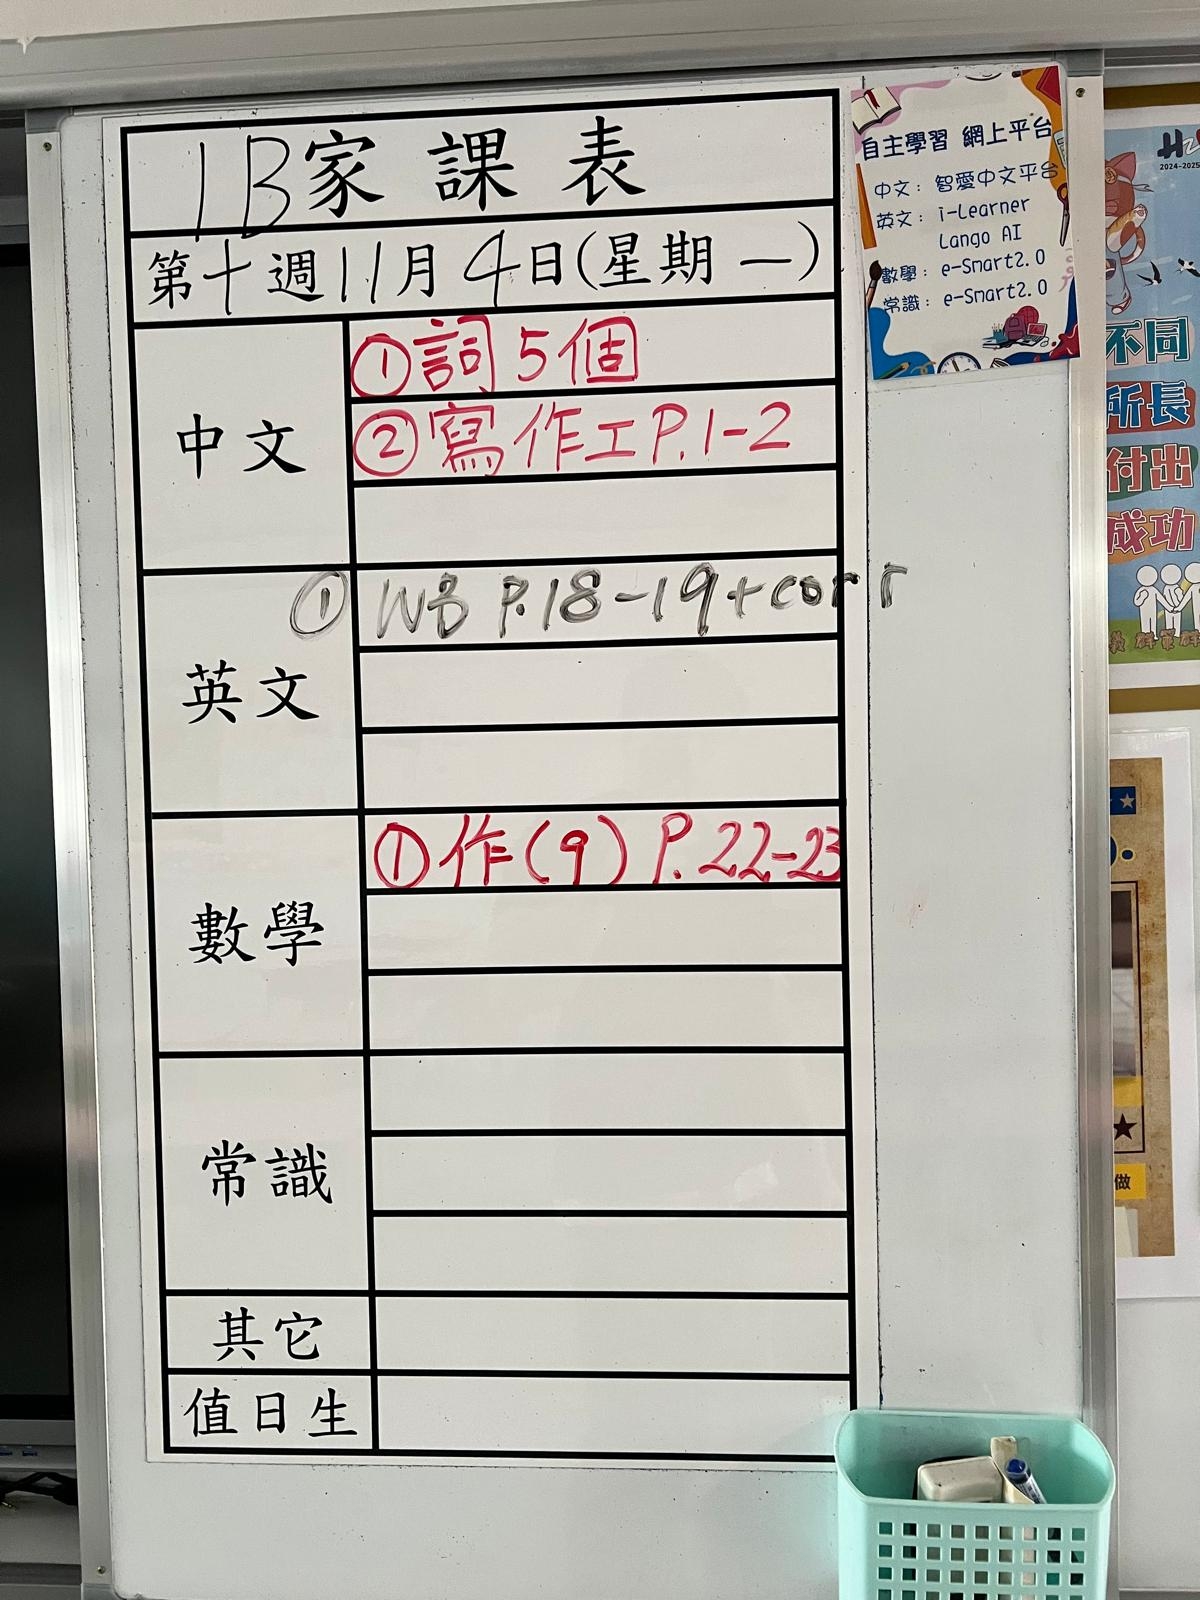 1B家課表
第十週11月4日(星期一)
中文
①詞5個
②寫作工P.1-2
英文
① WB P.18-19+corr
數學
①作(9) P.22-23
常識
其它
值日生
自主學習 網上平台
中文：智愛中文平台
英文：i-Learner
Lango AI
數學：e-Smart2.0
常識：e-Smart2.0
2024-2025
不同
所長
付出
成功
做